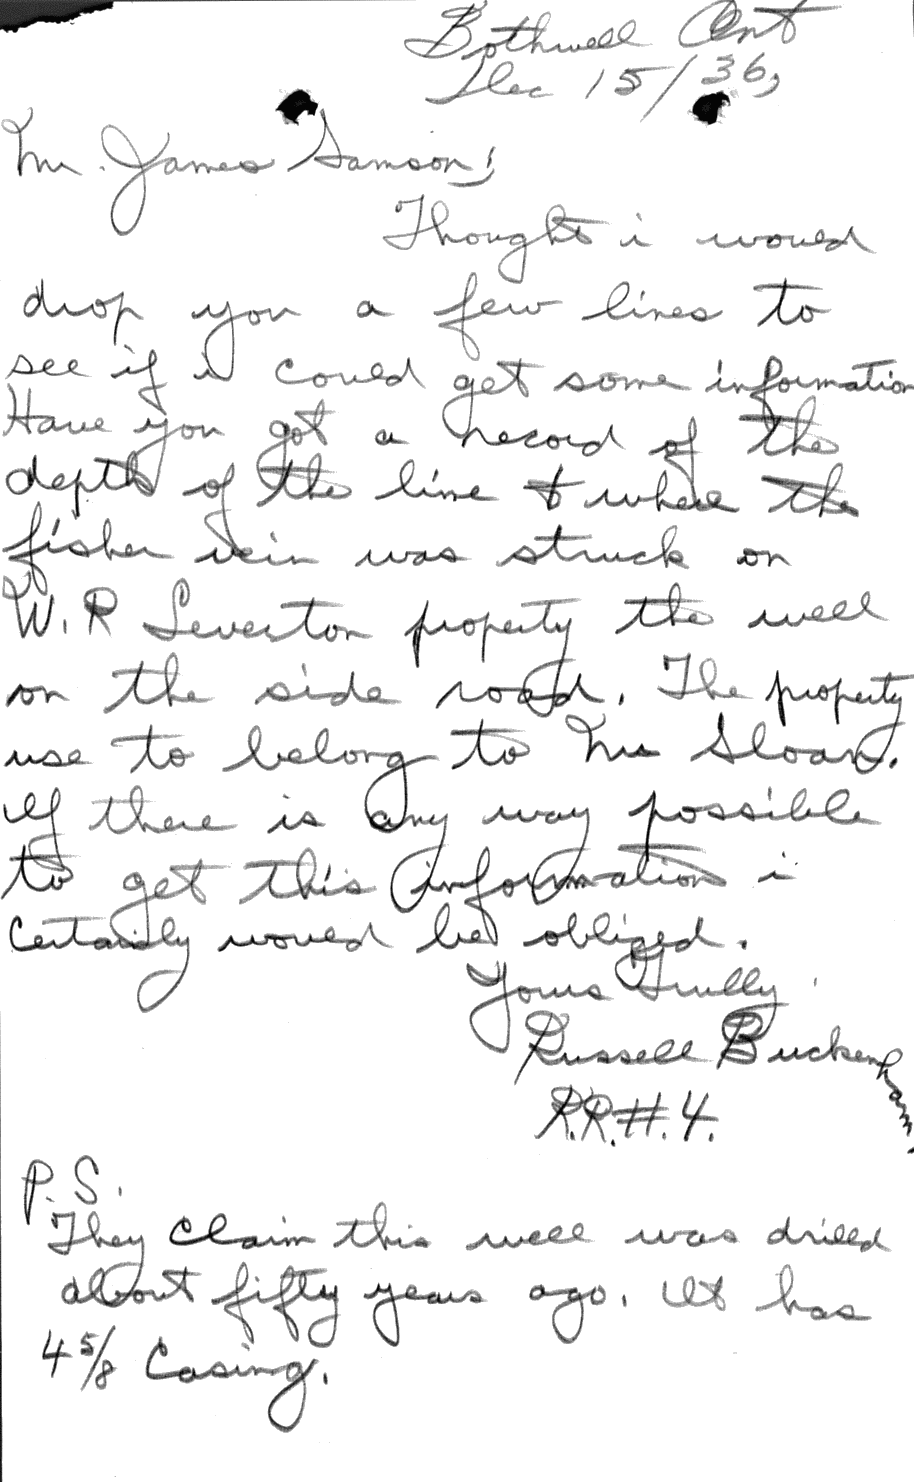 Bothwell Ont
Dec 15/36,
Mr. James Samson;
Thought i would
drop you a few lines to
see if i could get some information
Have you got a record of the
depth of the lime & where the
fisher vein was struck on
W. R Leverton property the well
on the side road. The property
use to belong to Mr Sloan.
If there is any way possible
to get this information i
Certainly would be obliged.
Yours Trully
Russell Buckenham,
R.R.#.4.
P.S.
They Claim this well was drilled
about fifty years ago. It has
4 5/8 Casing.